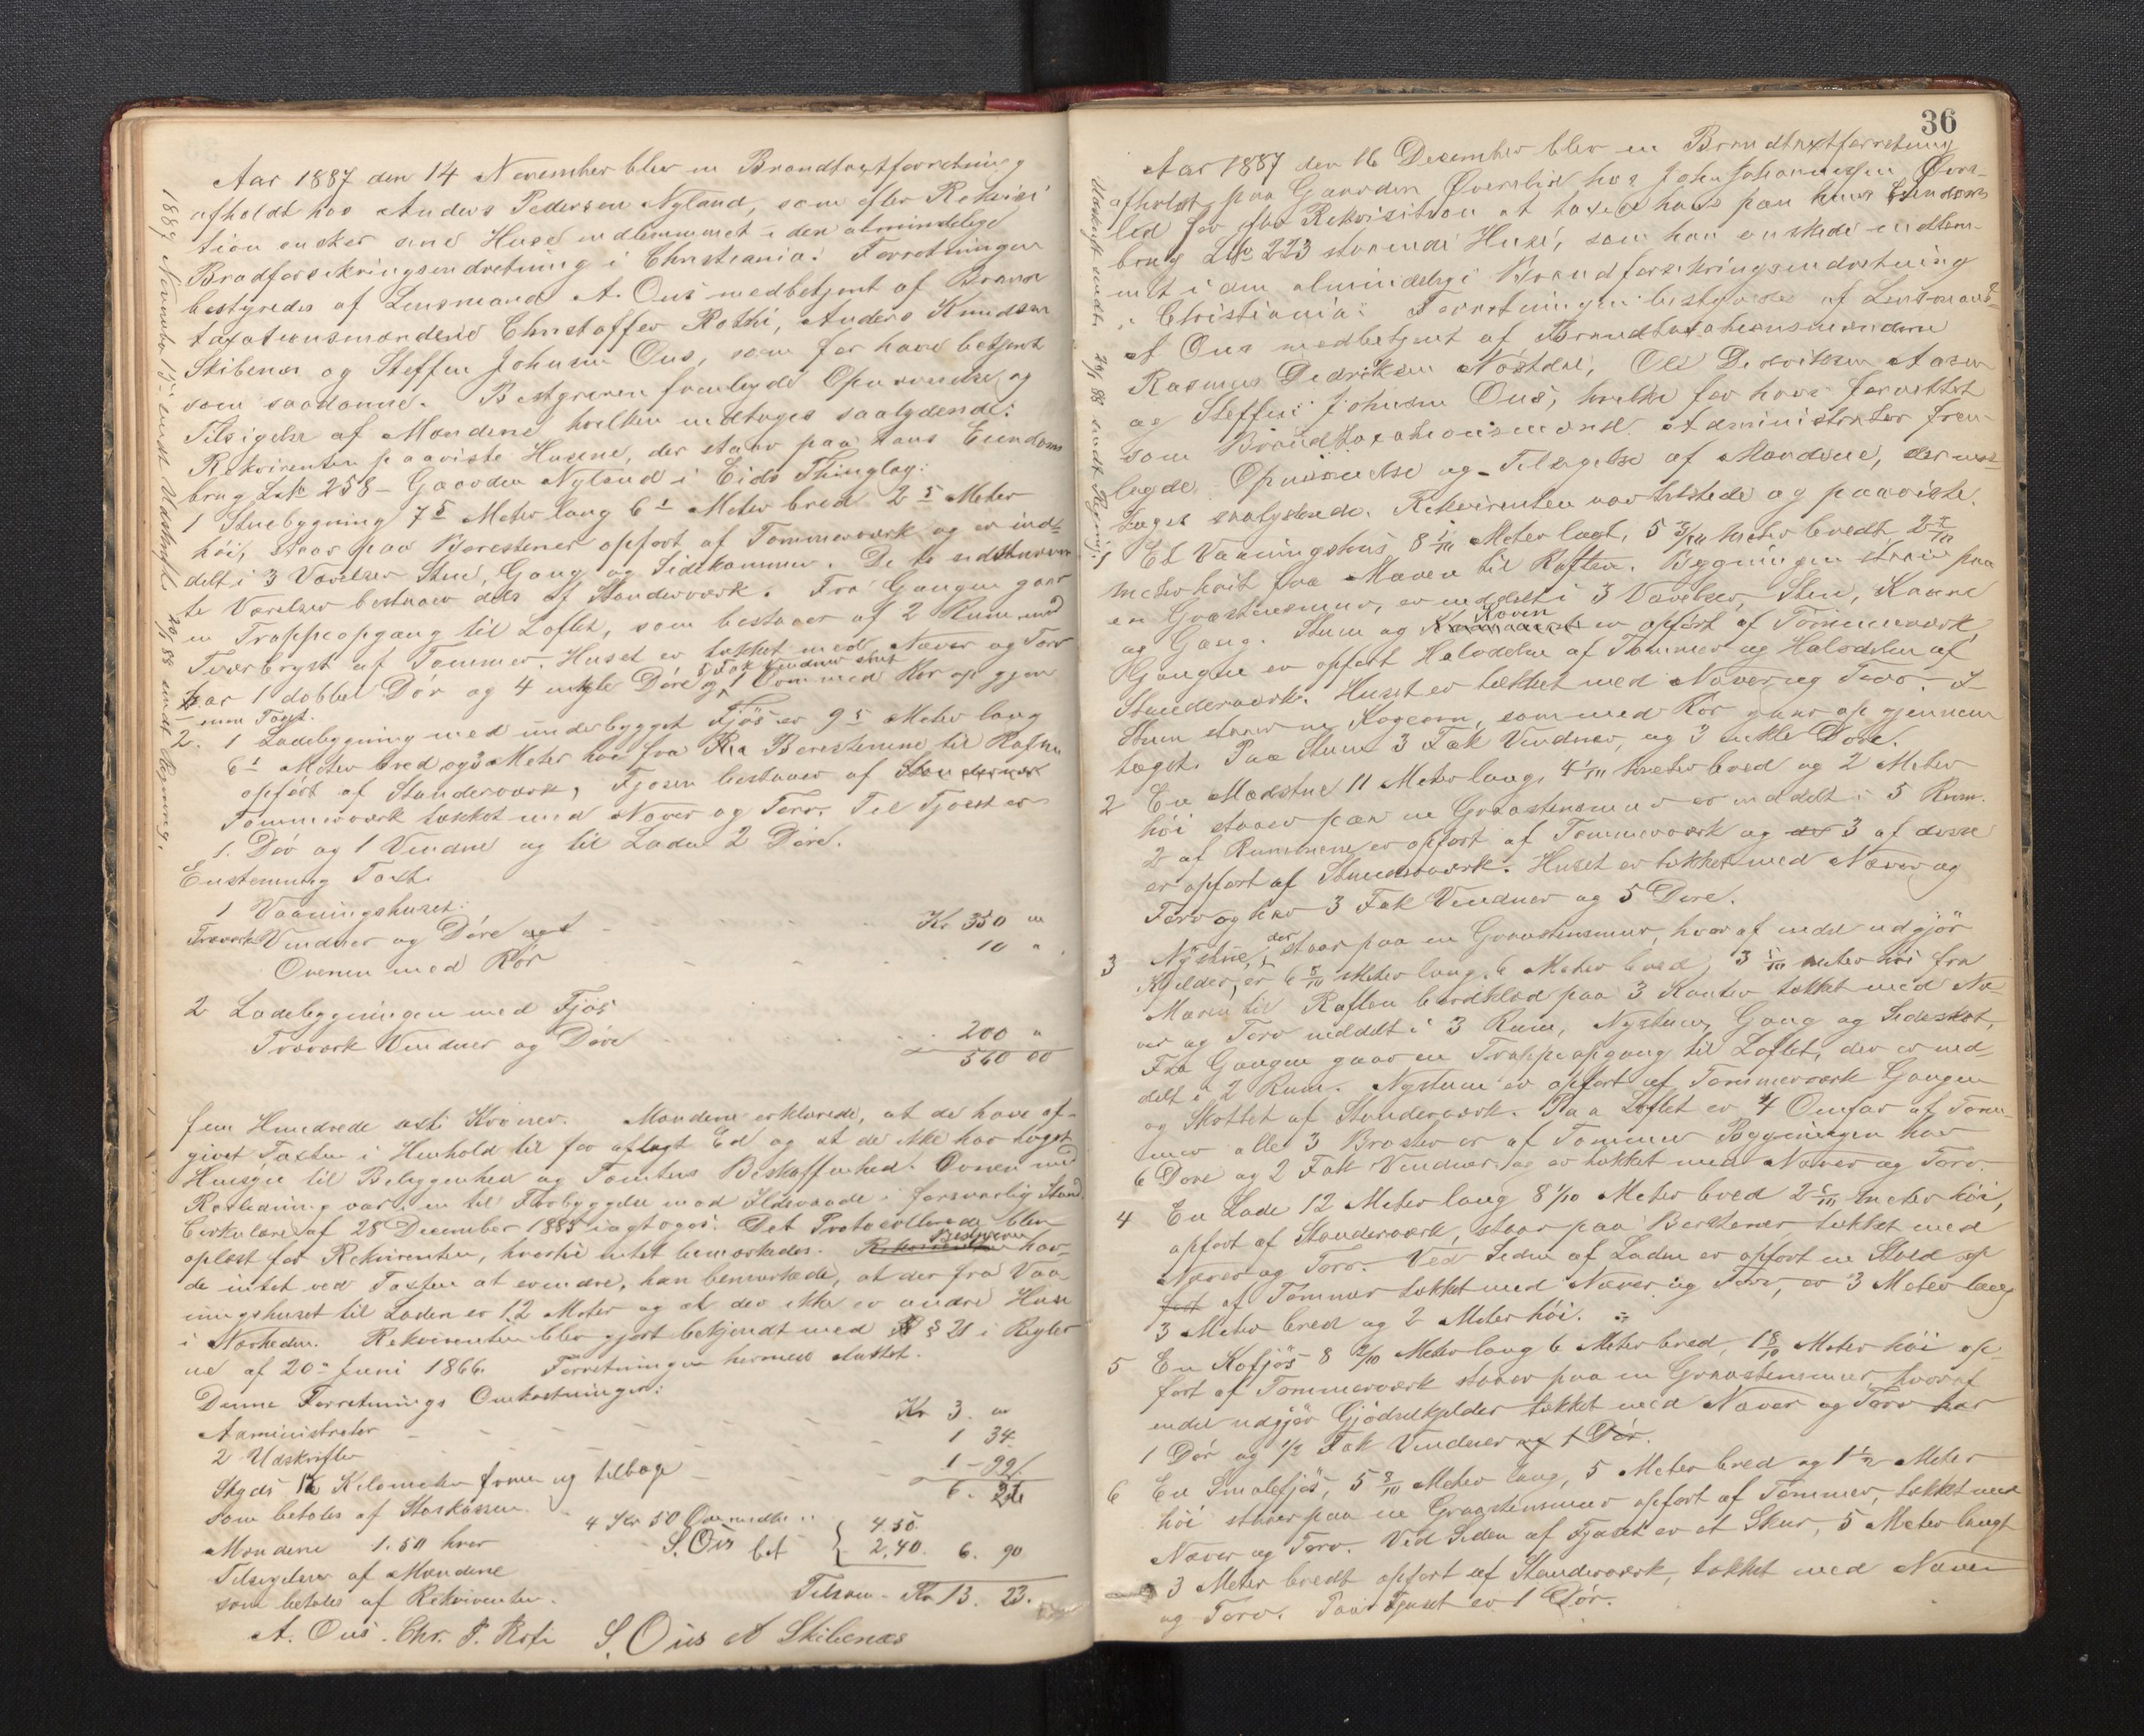 Aar 1887 den 14 November blev en Brandtaxtforretning
afholdt hos Anders Pedersen Nyland, som efter Rekvisi
tion ønsker sine Huse indlemmet i den almindelige
Bradforsikringsindretning i Christiania: Forretningen
bestyredes af Lensmand A. Ous medbetjent af Brand
taxationsmændene Christoffer Rothi, Anders Knudsen
Skibenes og Steffen Johnsen Ous, som før have betjent
som saadanne. Bestyreren fremlagde Opnævnelse og
Tilsigelse af Mændene, hvilken indtages saalydende:
Rekvirenten paaviste Husene, der staar paa hans Eiendoms
brug L№ 258 - Gaarden Nyland i Eids Thinglag:
1 Stuebygning 7 5 Meter lang 6 1 Meter bred 2 5 Meter
høi, staar paa Bærestener opført af Tømmerværk og er ind-
delt i 3 Værelser Stue, Gang og Sidekammer. De to sidstnævn
te Værelser bestaaer dels af Standerværk. Fra Gangen gaar
en Trappeopgang til Loftet, som bestaaer af 2 Rum med
Tværbryst af Tømmer. Huset er tækket med Næver og Torv
har 1 dobbel Dør og 4 enkle Døre og 1 Ovn med Rør op gjen
nem Taget.
2. 1 Ladebygning med underbygget Fjøs er 9 5 Meter lang
6 1 Meter bred og 3 Meter høi fra Bærestenene til Raften
opført af Standerværk, Fjøsen bestaaer af
Tømmerværk tækket med Næver og Torv. Til Fjøset er
1. Dør og 1 Vindue og til Laden 2 Døre.
Enstemmig Taxt:
1 Vaaningshuset:
Træværk Vinduer og Døre Kr 350 "
Ovnen med Rør 10 "
2 Ladebygningen med Fjøs
Træværk Vinduer og Døre 200 "
560 00
fem Hundrede sexti Kroner. Mændene erklærede, at de have af-
givet Taxten i Henhold til før aflagt Ed og at de ikke har taget
Hensyn til Beliggenhed og Tomtens Beskaffenhed. Ovnen med
Rørledning var en til Forbyggelse mod Ildsvaade i forsvarlig Stand.
Cirkulære af 28 December 1885 iagttoges. Det Protocollerede blev
oplæst for Rekvirenten, hvortil intet bemærkedes. Bestyreren hav-
de intet ved Taxten at erindre, han bemærkede, at der fra Vaa
ningshuset til Laden er 12 Meter og at der ikke er andre Huse
i Nærheden. Rekvirenten blev gjort bekjendt med § 21 i Regler
ne af 20de Juni 1866. Forretningen hermed sluttet.
Denne Forretnings Omkostninger:
Administrator Kr 3. "
2 Udskrifter 1 34
Skyds Kilometer frem og tilbage 1 - 99
som betales af Staskassen 6.
Mændene 1.50 hver 4.50
Tilsigelse af Mændene S. Ous bet 2,40. 6. 90
som betales af Rekvirenten. Tilsam. Kr 13. 23.
A. Ous. Chr. P. Roti S. Ous A Skibenæs
1887 November 15 Udskrift 20/1 88 sendt Regning.
36
Aar 1887 den 16 December blev en Brandtaxtforretning
afholdt paa Gaarden Øverslid hos John Johannessen Øvers-
lid før efter Rekvisition at taxere hans paa hans Eiendoms
brug L№ 223 staaende Huse, som han ønskede indlem-
met i den almindelige Brandforsikringsindretning
i Christiania: Forretningen bestyredes af Lensmand
A Ous medbetjent af Brandtaxationsmændene
Rasmus Dedriksen Nøstdal, Ole Dedriksen Aasen
og Steffen Johnsen Ous, hvilke før have forrettet
som Brandtaxationsmænd. Administrator frem-
lagde Opnævnelse og Tilsigelse af Mændene, der ind-
tages saalydende. Rekvirenten var tilstede og paaviste.
1 Et Vaaningshus 8 1/10 Meter langt, 5 3/10 Meter bredt 2 2/10
Meter høit fra Muren til Raften. Bygningen staar paa
en Graastensmur, er inddelt i 3 Værelser Stue, Kaave
og Gang. Stuen og Kaven er opført af Tømmerværk,
Gangen er opført Halvdelen af Tømmer og Halvdelen af
Standerværk. Huset er tækket med Næver og Torv. I
Stuen staaer en Kogeovn, som med Rør gaar op gjennem
taget. Paa Stuen 3 Fak Vinduer, og 3 enkle Døre.
2 En Mædstue 11 Meter lang, 4 1/10 Meter bred og 2 Meter
høi staaer paa en Graastensmur er inddelt i 5 Rum.
2 af Rummene er opført af Tømmerværk og 3 af disse
er opført af Standerværk. Huset er tækket med Næver og
Torv og har 3 Fak Vinduer og 5 Døre.
3 Nystue, der staar paa en Graastensmur, hvoraf endel udgjør
Kjelder, er 6 5/10 Meter lang, 6 Meter bred, 3 1/10 Meter høi fra
Muren til Raften bordklæd paa 3 Kanter tækket med Næ-
ver og Torv inddelt i 3 Rum, Nystuen, Gang og Sideskot,
Fra Gangen gaar en Trappeopgang til Loftet, der er ind
delt i 2 Rum. Nystuen er opført af Tømmerværk Gangen
og Skottet af Standerværk. Paa Loftet er 4 Omfar af Tøm-
mer alle 3 Brøster er af Tømmer Bygningen har
6 Døre og 2 Fak Vinduer og er tækket med Næver og Torv.
4 En Lade 12 Meter lang 8 1/10 Meter bred 2 6/10 Meter høi,
opført af Standerværk, staar paa Bærstener tækket med
Næver og Torv. Ved Siden af Laden er opført en Stald op
ført af Tømmer tækket med Næver og Torv, er 3 Meter lang
3 Meter bred og 2 Meter høi.
5 En Kofjøs 8 2/10 Meter lang 6 Meter bred, 1 8/10 Meter høi op-
ført af Tømmerværk staaer paa en Graastensmur, hvoraf
endel udgjør Gjødselkjelder tækket med Næver og Torv har
1 Dør og 1/2 Fak Vinduer og 1 Dør.
6 En Smalefjøs, 5 8/10 Meter lang, 5 Meter bred og 1 1/2 Meter
høi staaer paa en Graastensmur opført af Tømmer, tækket med
Næver og Torv. Ved Siden af Fjøset er et Skur, 5 Meter langt
3 Meter bredt opført af Standerværk, tækket med Næver
og Torv. Paa Fjøset er 1 Dør.
Udskrift sendt 20/1 88 sendt Regning: